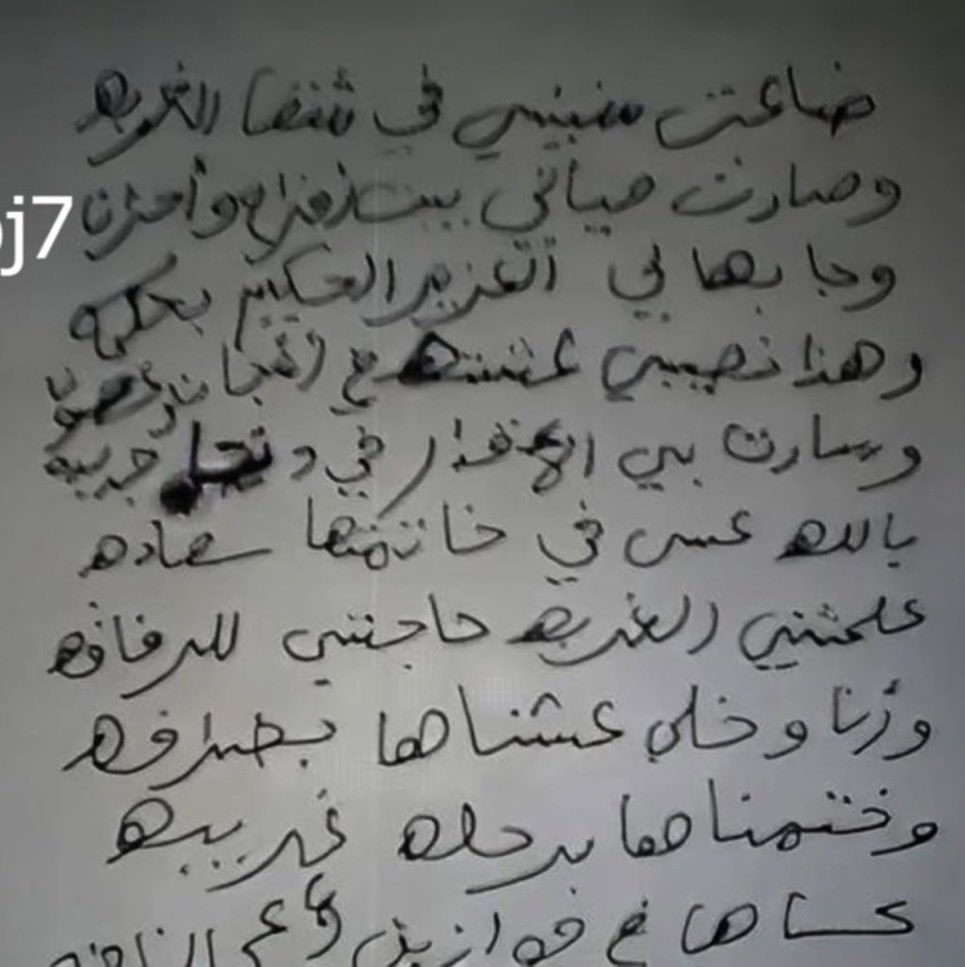 ضاعت سنيني في شقا الغربه
وصارت حياتي بين أفراح وأحزان
وجابها لي العزيز الحكيم بحكمه
وهذا نصيبي عشته مع
وسارت بي الاقدار في غريبه
بالله عسى في خاتمتها سعاده
علمتني الغربه حاجتي للرفاقه
وأنا وخلي عشناها بصداقه
وختمناها برحله غريبه
عساها في موازين
j7